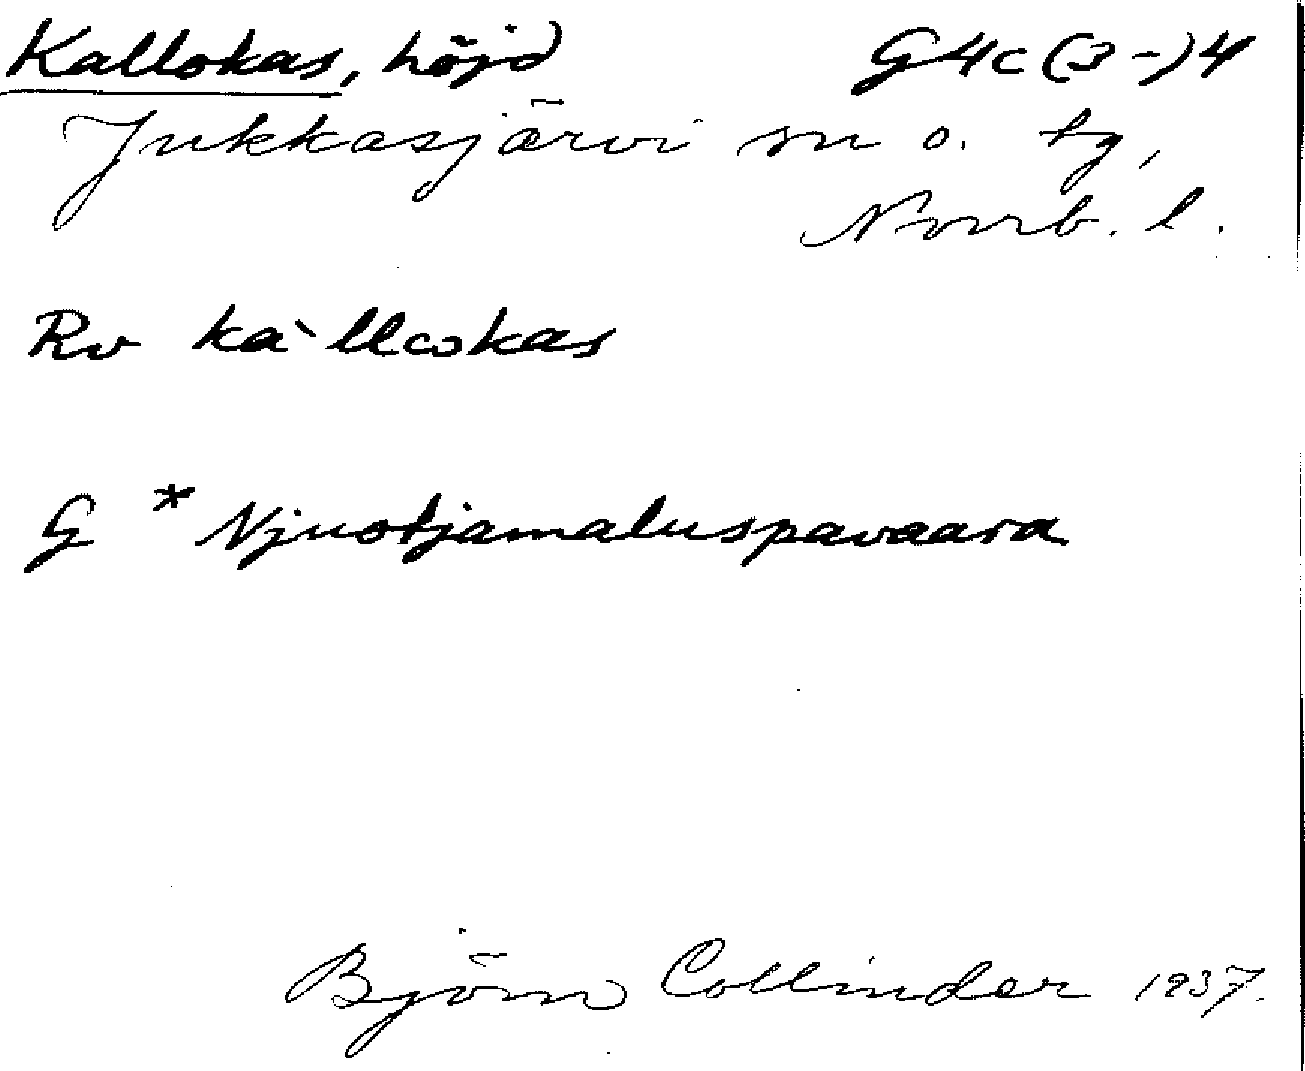 Kallokas, höjd G4c(3-)4
Jukkasjärvi sn o. tg,
Norrb. l.
Rv kàllωkas
G * Njuotjamaluspavaara
Björn Collinder 1937.